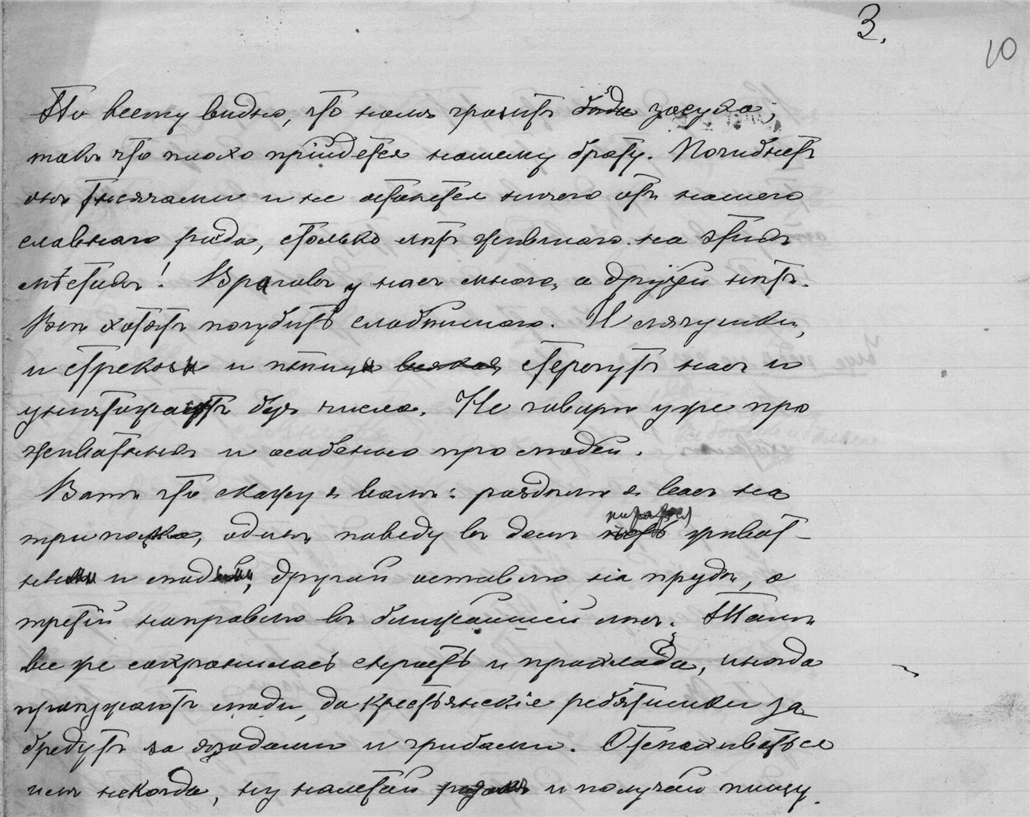 3.
10
По всему видно, что намъ грозитъ бѣда засуха
такъ что плохо прійдется нашему брату. Погибнетъ
онъ тысячами и не останется ничего отъ нашего
славнаго рода, столько лѣтъ жившаго на этихъ
мѣстахъ! Враговъ у насъ много, а друзей нѣтъ.
Всѣ хотятъ погубить слабѣйшаго. И лягушки,
и стрекозы и птицы всякая стерегутъ насъ и
уничтожаютъ безъ числа. Не говорю уже про
животныхъ и особенно про людей.
Вотъ что скажу я вамъ: раздѣлю я васъ на
три полка, одинъ поведу въ домъ животными
и людьми, другой оставлю на прудѣ, а
третій направлю въ ближайшій лѣсъ. Тамъ
все же сохранилась сырость и прохлада, иногда
проѣзжаютъ люди, да крестьянскіе ребятишки за
бредутъ за ягодами и грибами. Отмахиваться
имъ некогда, ну налетай и получай пищу.